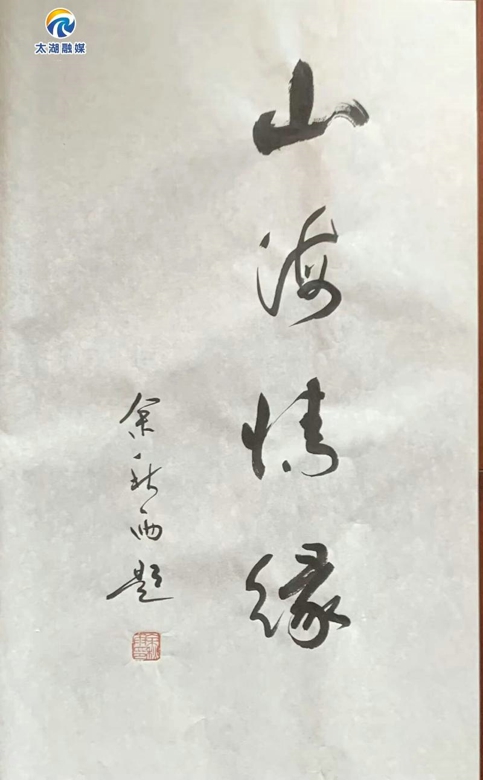 太湖融媒
山海情缘
余秋雨题